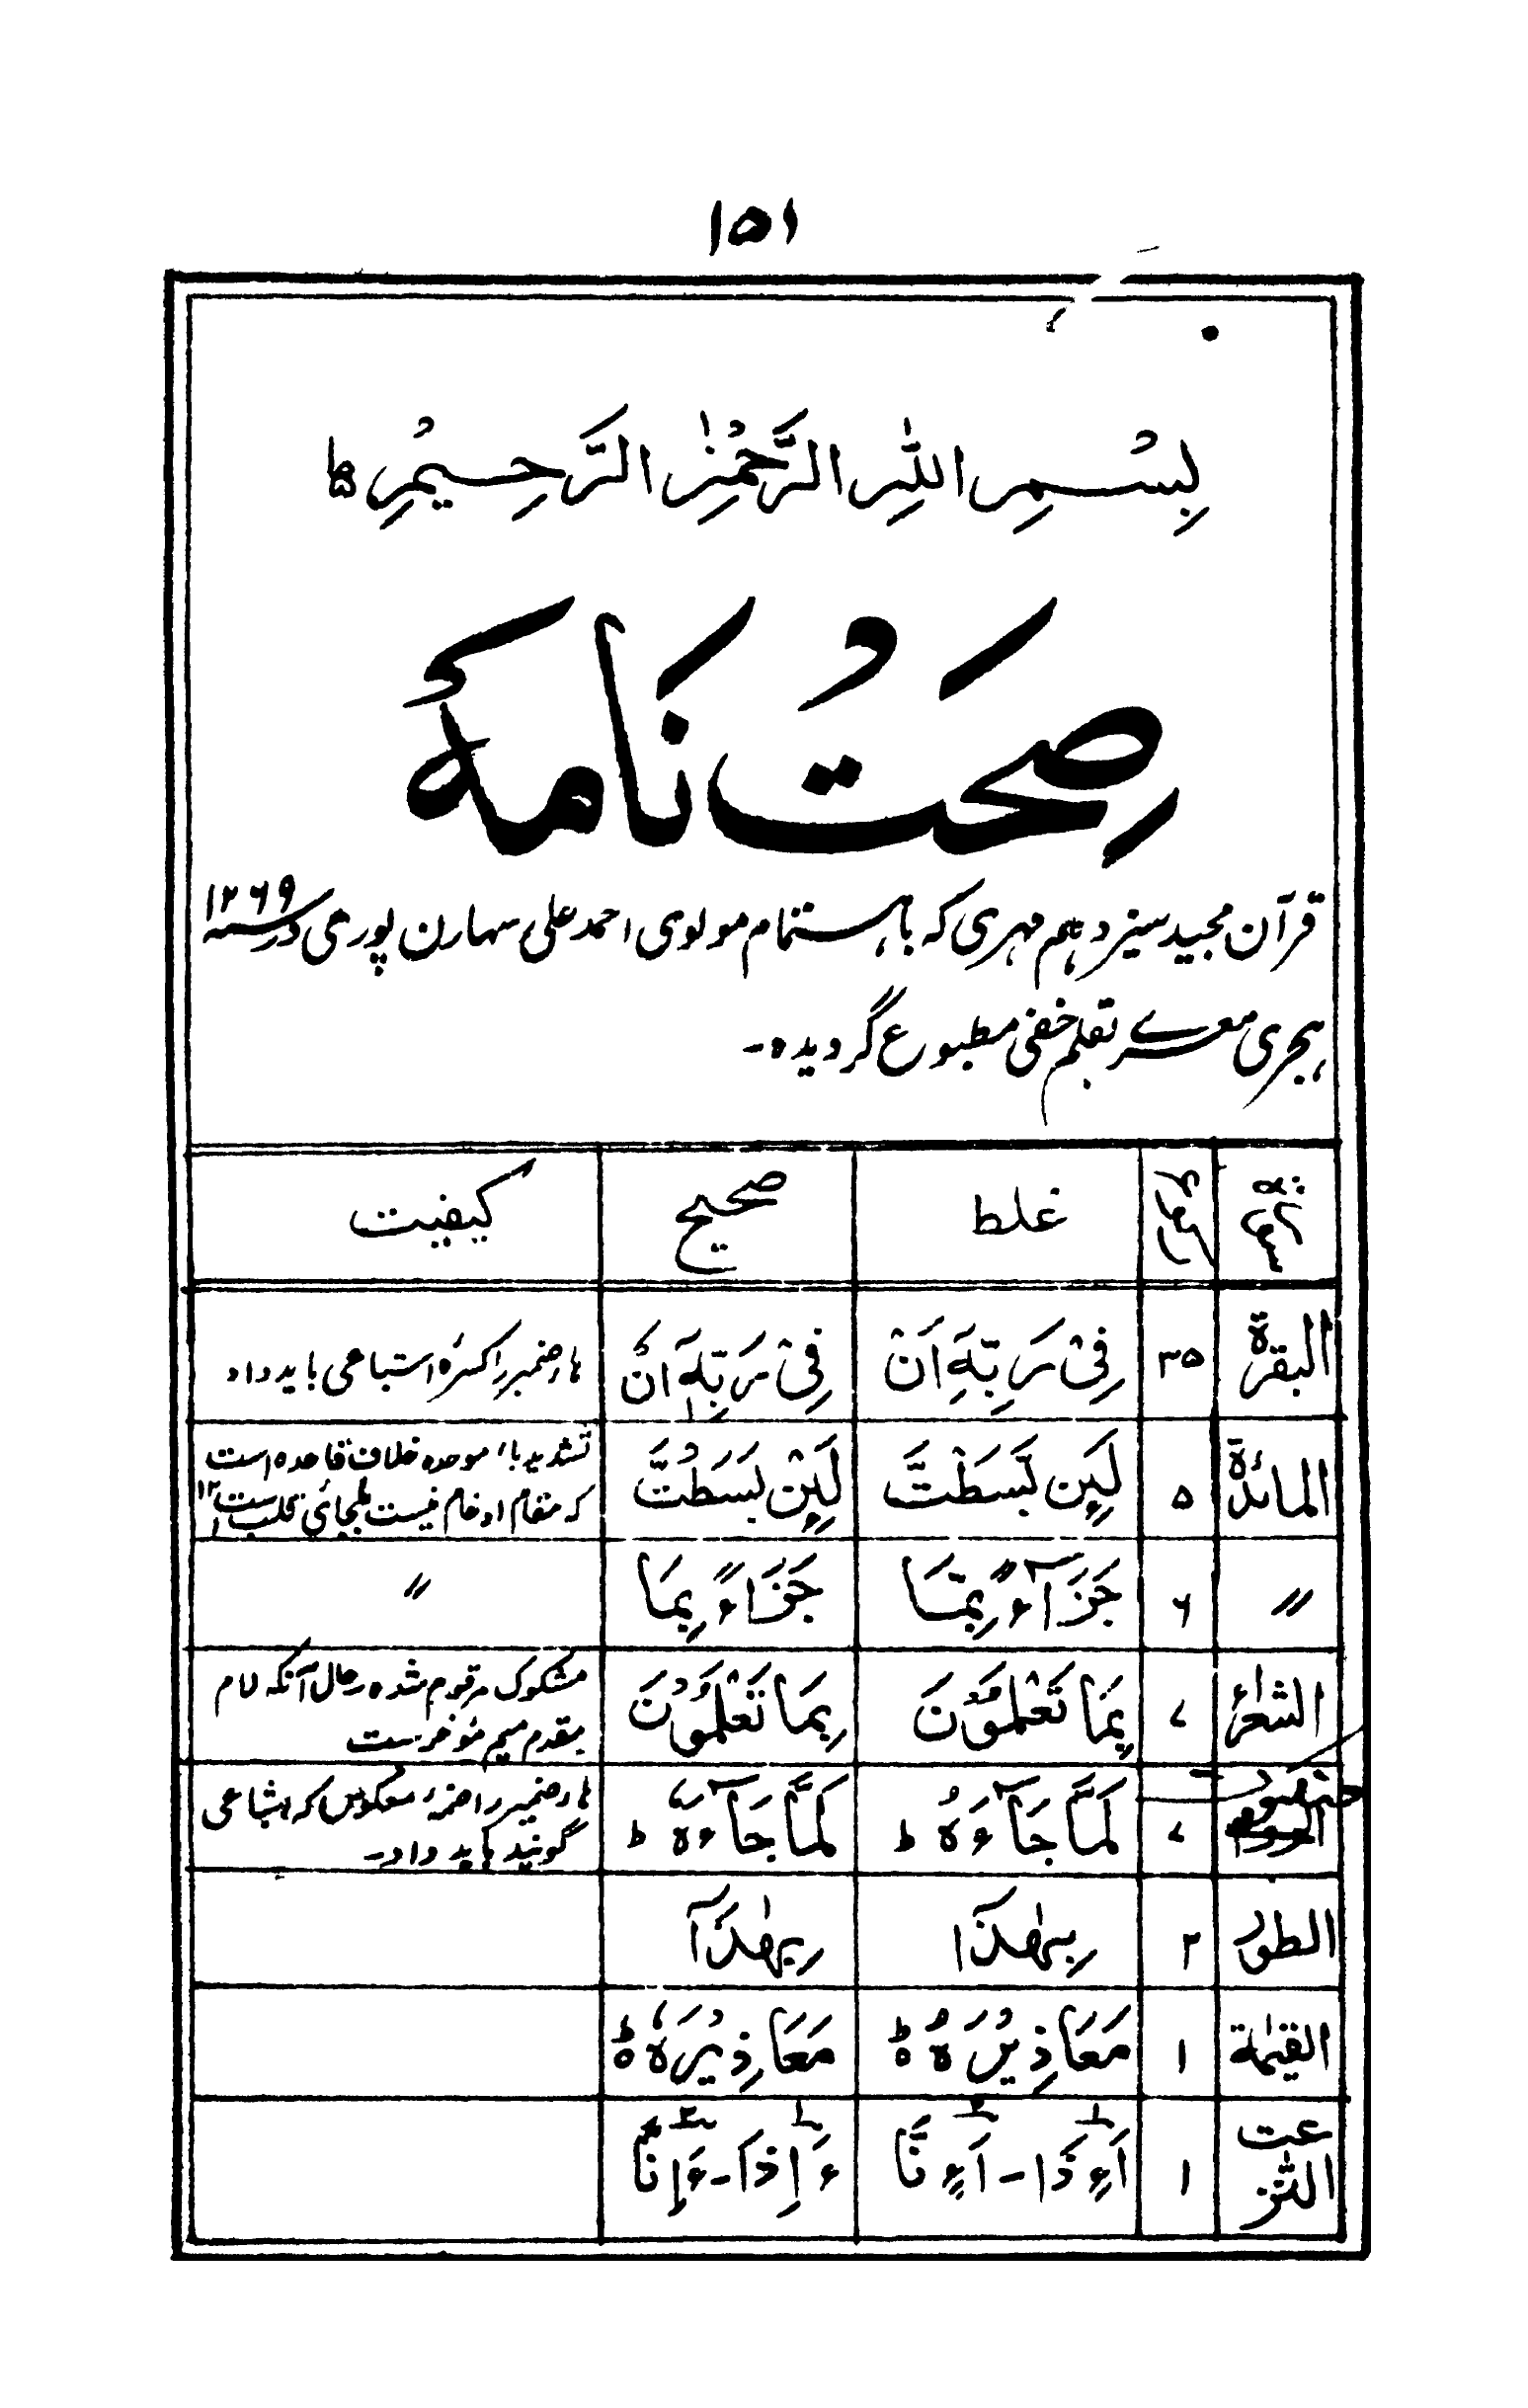 ۱۵۱
بِسْمِ اللّٰهِ الرَّحْمٰنِ الرَّحِيْمِ ۵
صِحَتُ نَامَهٔ
قرآن مجید سیزدهم مهری که باهتمام مولوی احمد علی سهارن پوری در سنه ۱۲۶۹
هجری معرے بقلم خفی مطبوع گردیده۔
غلط صحیح کیفیت
البقرة ۳۵ فِیْ رَبِّهٖٓ اَنْ فِیْ رَبِّهٖٓ اَنْ هاء ضمیر را کسرۂ اشباعی باید داد
المائدة ۵ لَئِن بَّسَطْتَّ لَئِنْ بَسَطْتَّ تشدید باء موحده خلاف قاعده است
که مقام ادغام نیست بلجائی قلب است ۱۲
〃 ۶ جَزَآءً بِّمَا جَزَاءً بِمَا 〃
الشعراء ۷ بِمَا تَعْلَمُوْنَ بِمَا تَعْلَمُوْنَ مشکوک مرقوم شده و حال آنکه لام
مقدم میم مؤخر ست
۷ لَمَّا جَآءَهُ ط لَمَّا جَآءَهٗ ط هاء ضمیر را ضمۂ معکوس که اشباعی
گویند باید داد۔
الطور ۲ بِهٰذَآ ا بِهٰذَآ
القیٰمة ۱ مَعَاذِیْرَهُ ط ۵ مَعَاذِیْرَهٗ ط ۵
النّٰزعت ۱ اَءِذَا - اَءِنَّا ءَاِذَا - ءَاِنَّا